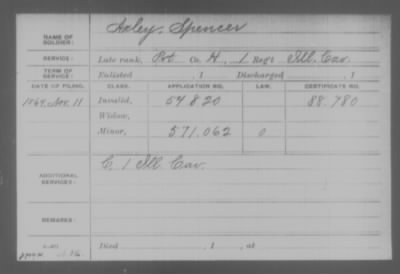 NAME OF SOLDIER: Axley, Spencer
SERVICE: Late rank, Pvt Co. H, 1 Reg't Ill. Cav.
TERM OF SERVICE: Enlisted , 1 Discharged , 1
DATE OF FILING. CLASS. APPLICATION NO. LAW. CERTIFICATE NO.
1864, Nov. 11 Invalid, 54820 88.780
Widow,
Minor, 571,062 0
C. 1 Ill. Cav.
ADDITIONAL SERVICES:
REMARKS:
Died , 1 , at